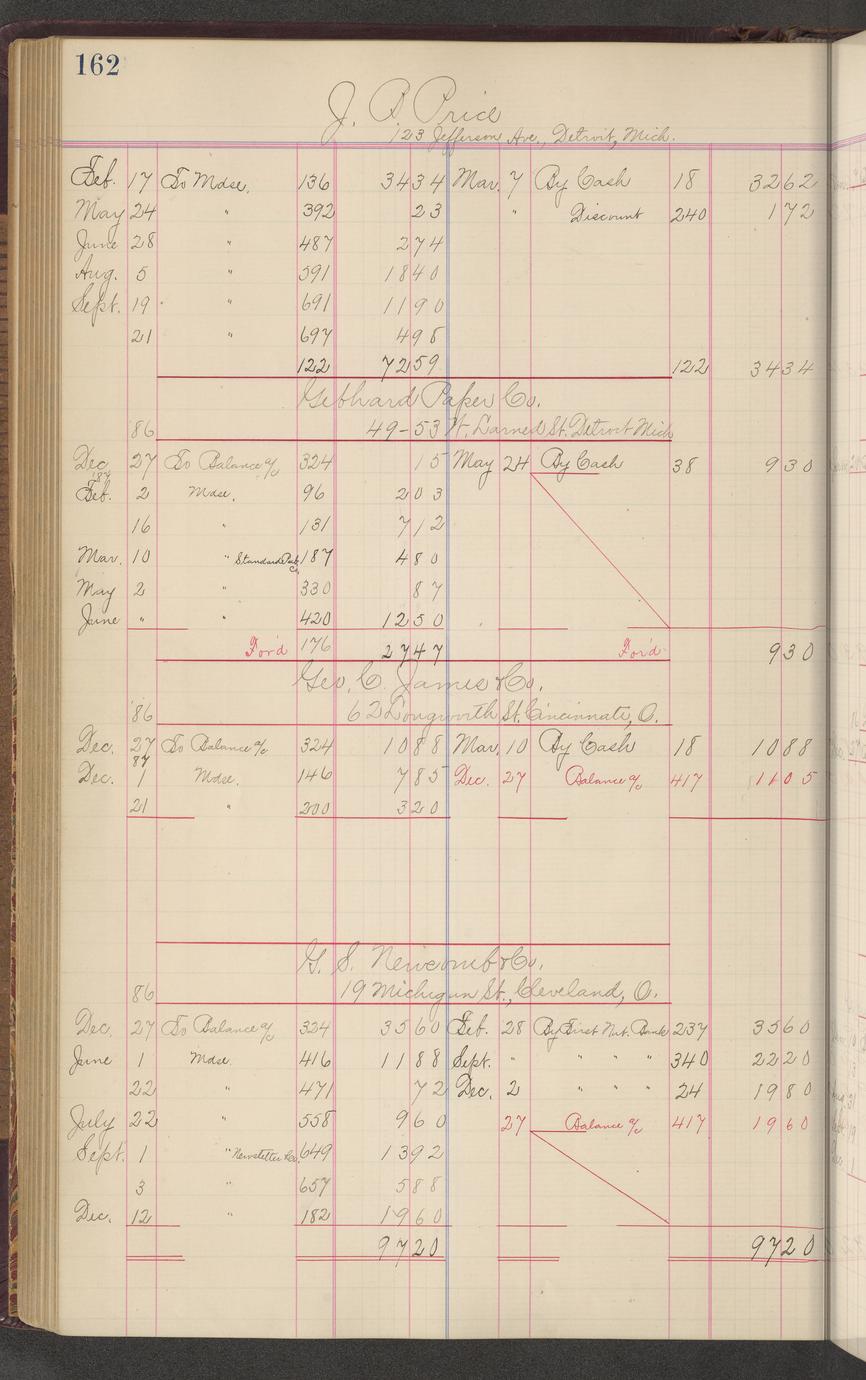 162
J. B. Price
123 Jefferson Ave., Detroit, Mich.
Feb. 17 To Mdse. 136 3434 Mar. 7 By Cash 18 3262
May 24 " 392 23 " Discount 240 172
June 28 " 487 274
Aug. 5 " 591 1840
Sept. 19 " 691 1190
21 " 697 498
122 7259 122 3434
Gebhard Paper Co.
86 49-53 W. Larned St. Detroit Mich
Dec 27 To Balance a/c 324 15 May 24 By Cash 38 930
'87
Feb. 2 Mdse. 96 203
16 " 131 712
Mar. 10 " Standard Pub. Co. 187 480
May 2 " 330 87
June " " 420 1250
For'd 176 2747 For'd 930
Geo. C. James & Co.
86 62 Longworth St. Cincinnati, O.
Dec. 27 To Balance a/c 324 1088 Mar. 10 By Cash 18 1088
87
Dec. 1 Mdse. 146 785 Dec. 27 Balance a/c 417 1105
21 " 200 320
G. S. Newcomb & Co.
86 19 Michigan St., Cleveland, O.
Dec. 27 To Balance a/c 324 3560 Feb. 28 By First Nat. Bank 237 3560
June 1 Mdse. 416 1188 Sept. " " " " 340 2220
22 " 471 72 Dec. 2 " " " 24 1980
July 22 " 558 960 27 Balance a/c 417 1960
Sept. 1 " Co. 649 1392
3 " 657 588
Dec. 12 " 182 1960
9720 9720